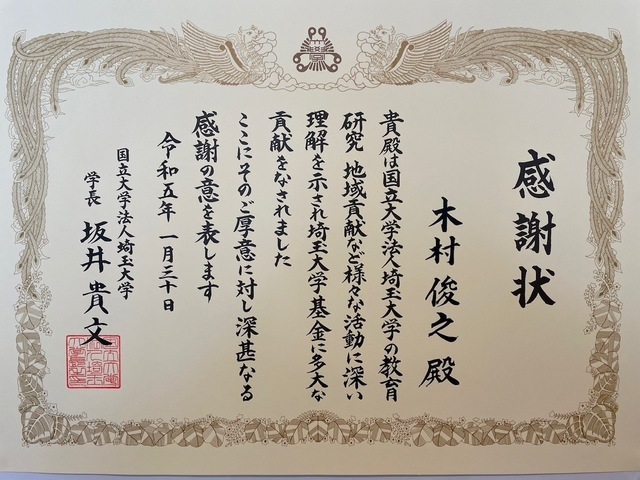 感謝状
木村俊之殿
貴殿は国立大学法人埼玉大学の教育
研究 地域貢献など様々な活動に深い
理解を示され埼玉大学基金に多大な
貢献をなされました
ここにそのご厚意に対し深甚なる
感謝の意を表します
令和五年 一月三十日
国立大学法人埼玉大学
学長 坂井貴文